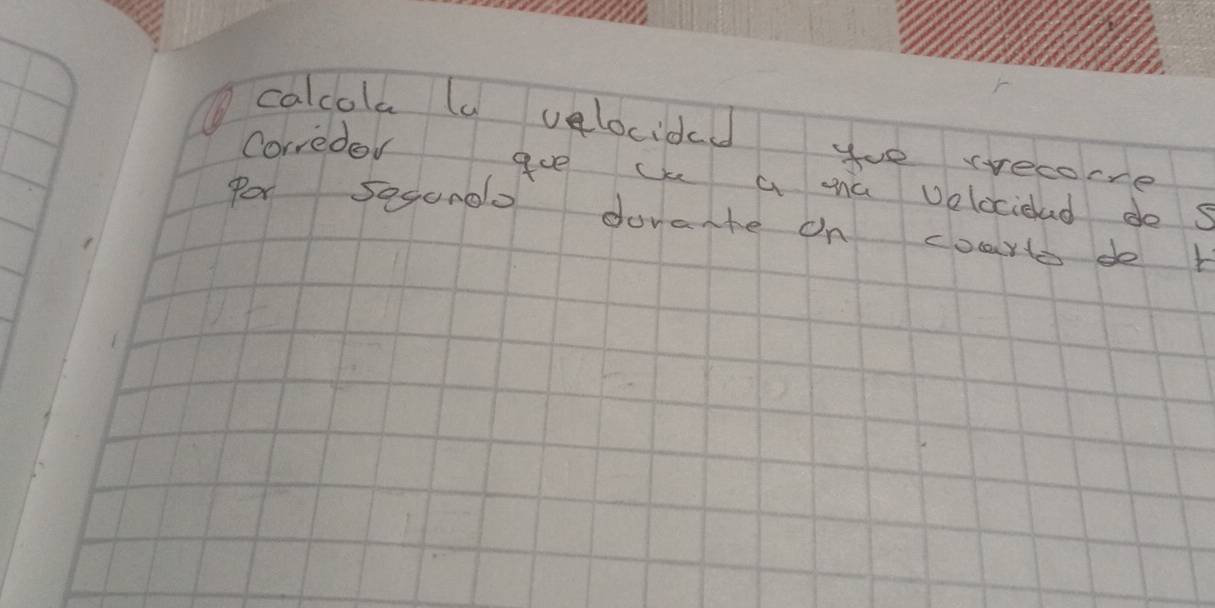 6 calcola la velocidad que rrecorre
corredor que va a una velocidad de 5
por segundo durante un coarto de h